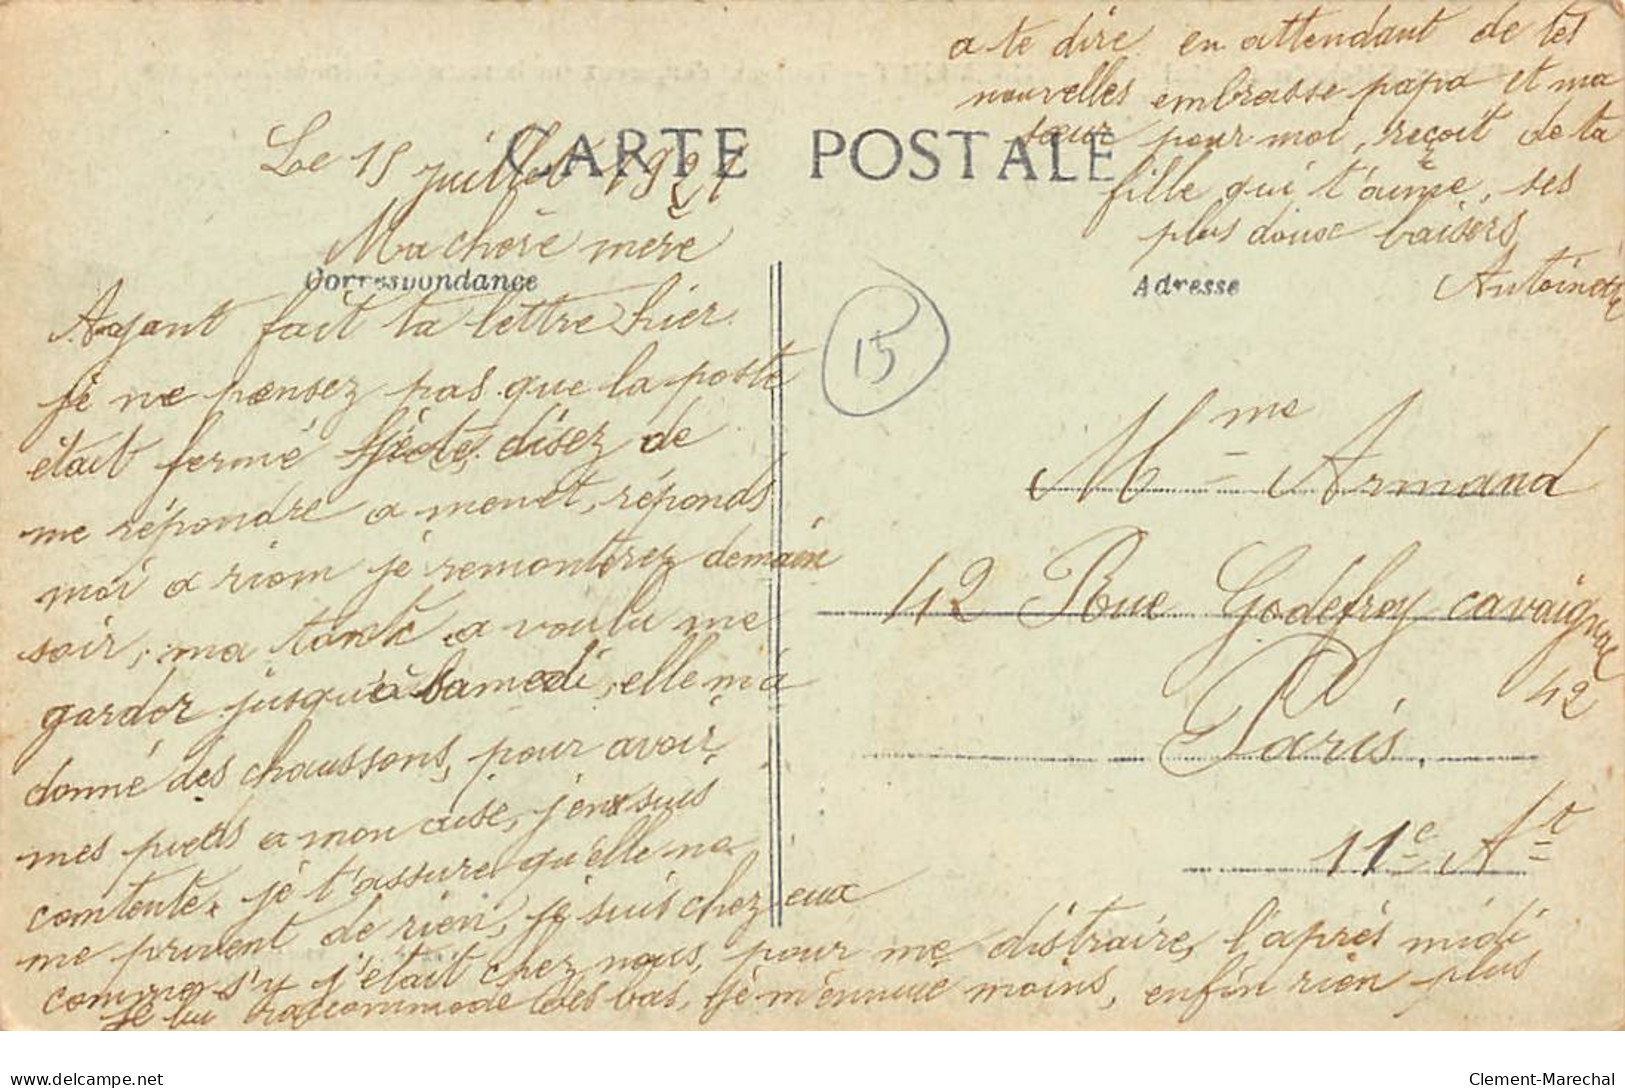 CARTE POSTALE
Correspondance
Adresse
Le 15 juillet 1921
Ma chère mère
Ayant fait ta lettre hier
je ne pensez pas que la poste
était fermé disez de
me répondre a menet, réponds
moi a riom je remonterez demain
soir, ma tante a voulu me
garder jusqu'à Samedi, elle m'a
donné des chaussons, pour avoir
mes pieds a mon aise, j'en suis
contente, je t'assure qu'elle ne
me privent de rien, je suis chez eux
comme s'y j'était chez nous, pour me distraire, l'après midi
je lui raccommode des bas, je m'ennuie moins, enfin rien plus
a te dire en attendant de tes
nouvelles embrasse papa et ma
sœur pour moi, reçoit de ta
fille qui t'aime, ses
plus doux baisers
Antoinette
15
Mme Armand
42 Rue Godefroy cavaignac
42
Paris.
11e Ar
Clement-Marechal
delcampe.net